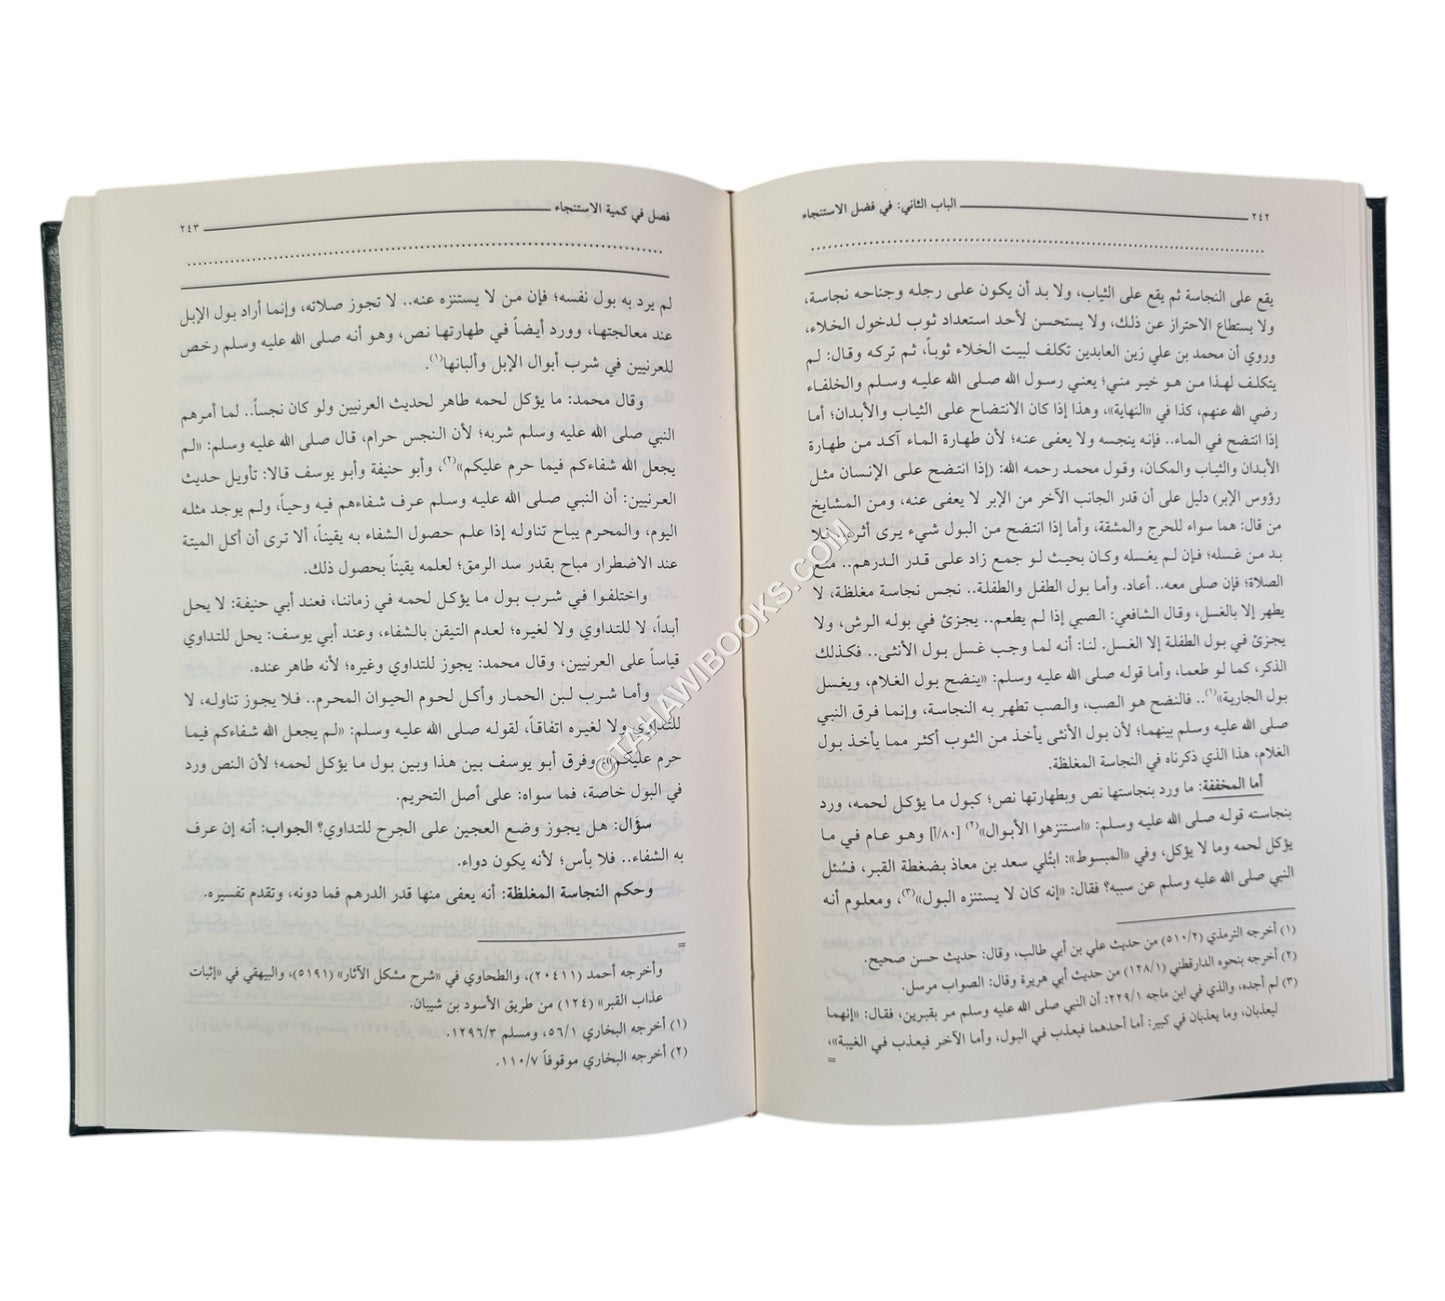 ٢٤٢ الباب الثاني: في فضل الاستنجاء
يقع على النجاسة ثم يقع على الثياب، ولا بد أن يكون على رجله وجناحه نجاسة،
ولا يستطاع الاحتراز عن ذلك، ولا يستحسن لأحد استعداد ثوب لدخول الخلاء،
وروي أن محمد بن علي زين العابدين تكلف لبيت الخلاء ثوباً، ثم تركه وقال: لم
يتكلف لهذا من هو خير مني؛ يعني رسول الله صلى الله عليه وسلم والخلفاء
رضي الله عنهم، كذا في «النهاية»، وهذا إذا كان الانتضاح على الثياب والأبدان؛ أما
إذا انتضح في الماء.. فإنه ينجسه ولا يعفى عنه؛ لأن طهارة الماء آكد من طهارة
الأبدان والثياب والمكان، وقول محمد رحمه الله: (إذا انتضح على الإنسان مثل
رؤوس الإبر) دليل على أن قدر الجانب الآخر من الإبر لا يعفى عنه، ومن المشايخ
من قال: هما سواء للحرج والمشقة، وأما إذا انتضح من البول شيء يرى أثره.. فلا
بد من غسله؛ فإن لم يغسله وكان بحيث لو جمع زاد على قدر الدرهم.. منع
الصلاة؛ فإن صلى معه.. أعاد. وأما بول الطفل والطفلة.. نجس نجاسة مغلظة، لا
يطهر إلا بالغسل، وقال الشافعي: الصبي إذا لم يطعم.. يجزئ في بوله الرش، ولا
يجزئ في بول الطفلة إلا الغسل. لنا: أنه لما وجب غسل بول الأنثى.. فكذلك
الذكر، كما لو طعما، وأما قوله صلى الله عليه وسلم: «ينضح بول الغلام، ويغسل
بول الجارية»(١).. فالنضح هو الصب، والصب تطهر به النجاسة، وإنما فرق النبي
صلى الله عليه وسلم بينهما؛ لأن بول الأنثى يأخذ من الثوب أكثر مما يأخذ بول
الغلام، هذا الذي ذكرناه في النجاسة المغلظة.
أما المخففة: ما ورد بنجاستها نص وبطهارتها نص؛ كبول ما يؤكل لحمه، ورد
بنجاسته قوله صلى الله عليه وسلم: «استنزهوا الأبوال»(٢) [٨٠/أ] وهو عام في ما
يؤكل لحمه وما لا يؤكل، وفي «المبسوط»: ابتُلي سعد بن معاذ بضغطة القبر، فسُئل
النبي صلى الله عليه وسلم عن سببه؟ فقال: «إنه كان لا يستنزه البول»(٣)، ومعلوم أنه
(١) أخرجه الترمذي (٥١٠/٢) من حديث علي بن أبي طالب، وقال: حديث حسن صحيح.
(٢) أخرجه بنحوه الدارقطني (١٢٨/١) من حديث أبي هريرة وقال: الصواب مرسل.
(٣) لم أجده، والذي في ابن ماجه ٢٢٩/١: أن النبي صلى الله عليه وسلم مر بقبرين، فقال: «إنهما
ليعذبان، وما يعذبان في كبير: أما أحدهما فيعذب في البول، وأما الآخر فيعذب في الغيبة»،
=
فصل في كمية الاستنجاء ٢٤٣
لم يرد به بول نفسه؛ فإن من لا يستنزه عنه.. لا تجوز صلاته، وإنما أراد بول الإبل
عند معالجتها، وورد أيضاً في طهارتها نص، وهو أنه صلى الله عليه وسلم رخص
للعرنيين في شرب أبوال الإبل وألبانها(١).
وقال محمد: ما يؤكل لحمه طاهر لحديث العرنيين ولو كان نجساً.. لما أمرهم
النبي صلى الله عليه وسلم شربه؛ لأن النجس حرام، قال صلى الله عليه وسلم: «لم
يجعل الله شفاءكم فيما حرم عليكم»(٢)، وأبو حنيفة وأبو يوسف قالا: تأويل حديث
العرنيين: أن النبي صلى الله عليه وسلم عرف شفاءهم فيه وحياً، ولم يوجد مثله
اليوم، والمحرم يباح تناوله إذا علم حصول الشفاء به يقيناً، ألا ترى أن أكل الميتة
عند الاضطرار مباح بقدر سد الرمق؛ لعلمه يقيناً بحصول ذلك.
واختلفوا في شرب بول ما يؤكل لحمه في زماننا، فعند أبي حنيفة: لا يحل
أبداً، لا للتداوي ولا لغيره؛ لعدم التيقن بالشفاء، وعند أبي يوسف: يحل للتداوي
قياساً على العرنيين، وقال محمد: يجوز للتداوي وغيره؛ لأنه طاهر عنده.
وأما شرب لبن الحمار وأكل لحوم الحيوان المحرم.. فلا يجوز تناوله، لا
للتداوي ولا لغيره اتفاقاً، لقوله صلى الله عليه وسلم: «لم يجعل الله شفاءكم فيما
حرم عليكم»، وفرق أبو يوسف بين هذا وبين بول ما يؤكل لحمه؛ لأن النص ورد
في البول خاصة، فما سواه: على أصل التحريم.
سؤال: هل يجوز وضع العجين على الجرح للتداوي؟ الجواب: أنه إن عرف
به الشفاء.. فلا بأس؛ لأنه يكون دواء.
وحكم النجاسة المغلظة: أنه يعفى منها قدر الدرهم فما دونه، وتقدم تفسيره.
=
وأخرجه أحمد (٢٠٤١١)، والطحاوي في «شرح مشكل الآثار» (٥١٩١)، والبيهقي في «إثبات
عذاب القبر» (١٢٤) من طريق الأسود بن شيبان.
(١) أخرجه البخاري ٥٦/١، ومسلم ١٢٩٦/٣.
(٢) أخرجه البخاري موقوفاً ١١٠/٧.
©TAHAWIBOOKS.COM